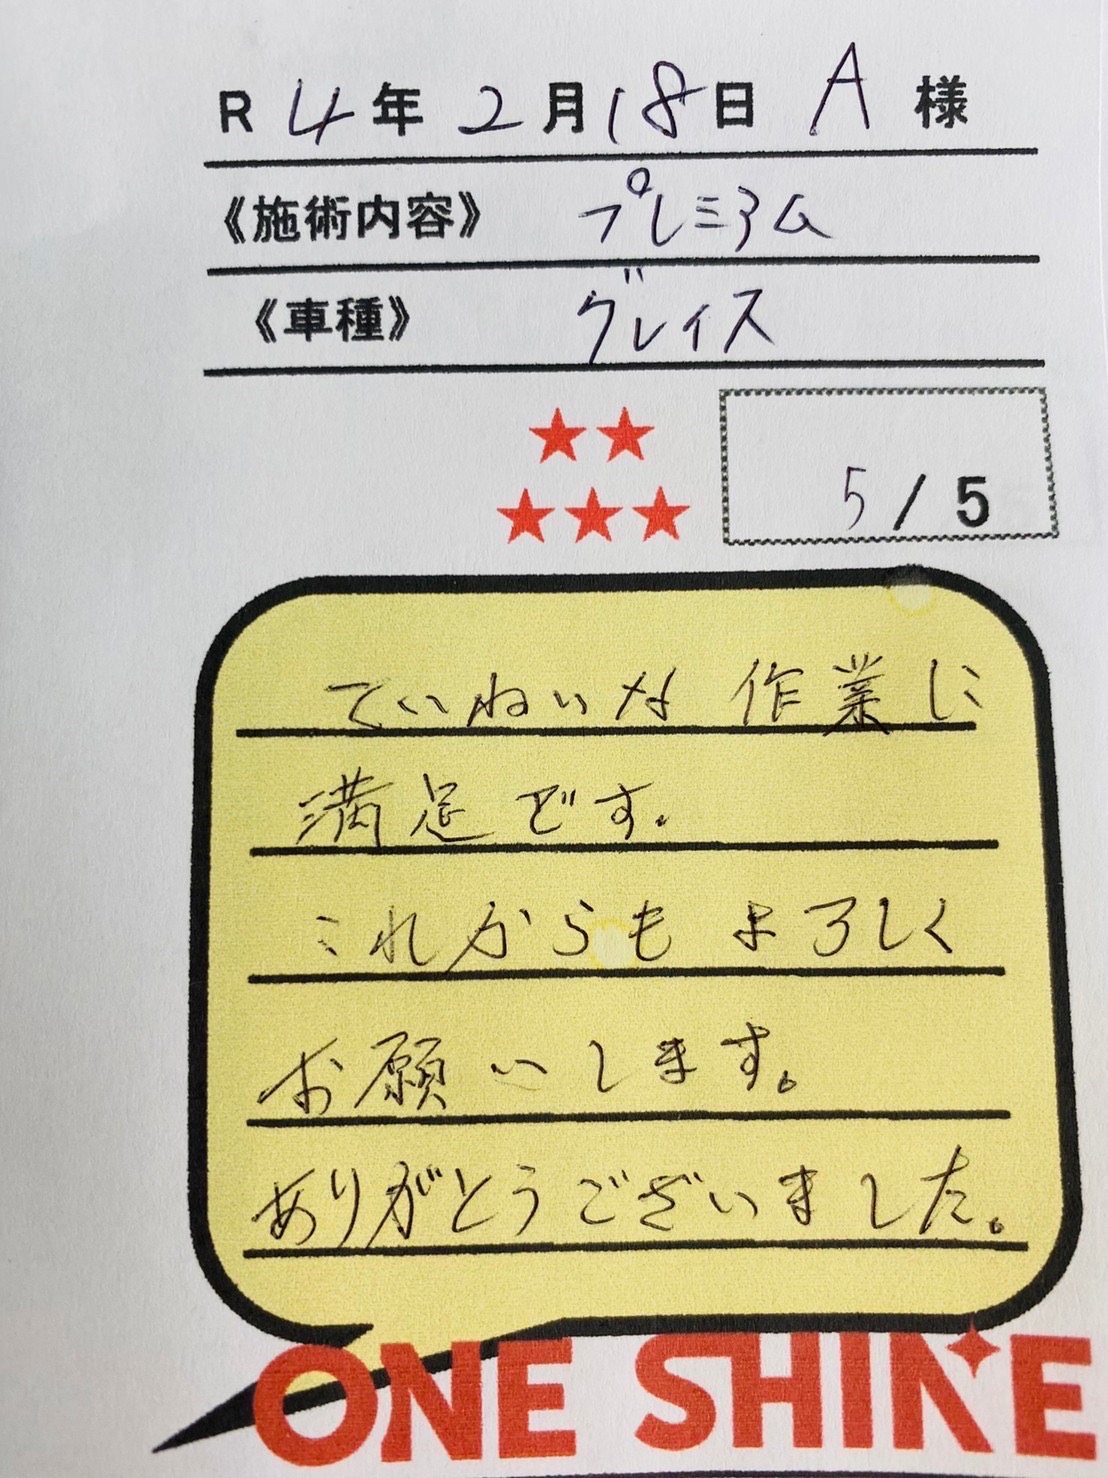 R 4年 2月18日 A 様
《施術内容》 プレミアム
《車種》 グレイス
★★
★★★
5/5
ていねいな作業に
満足です.
これからもよろしく
お願いします。
ありがとうございました。
ONE SHINE